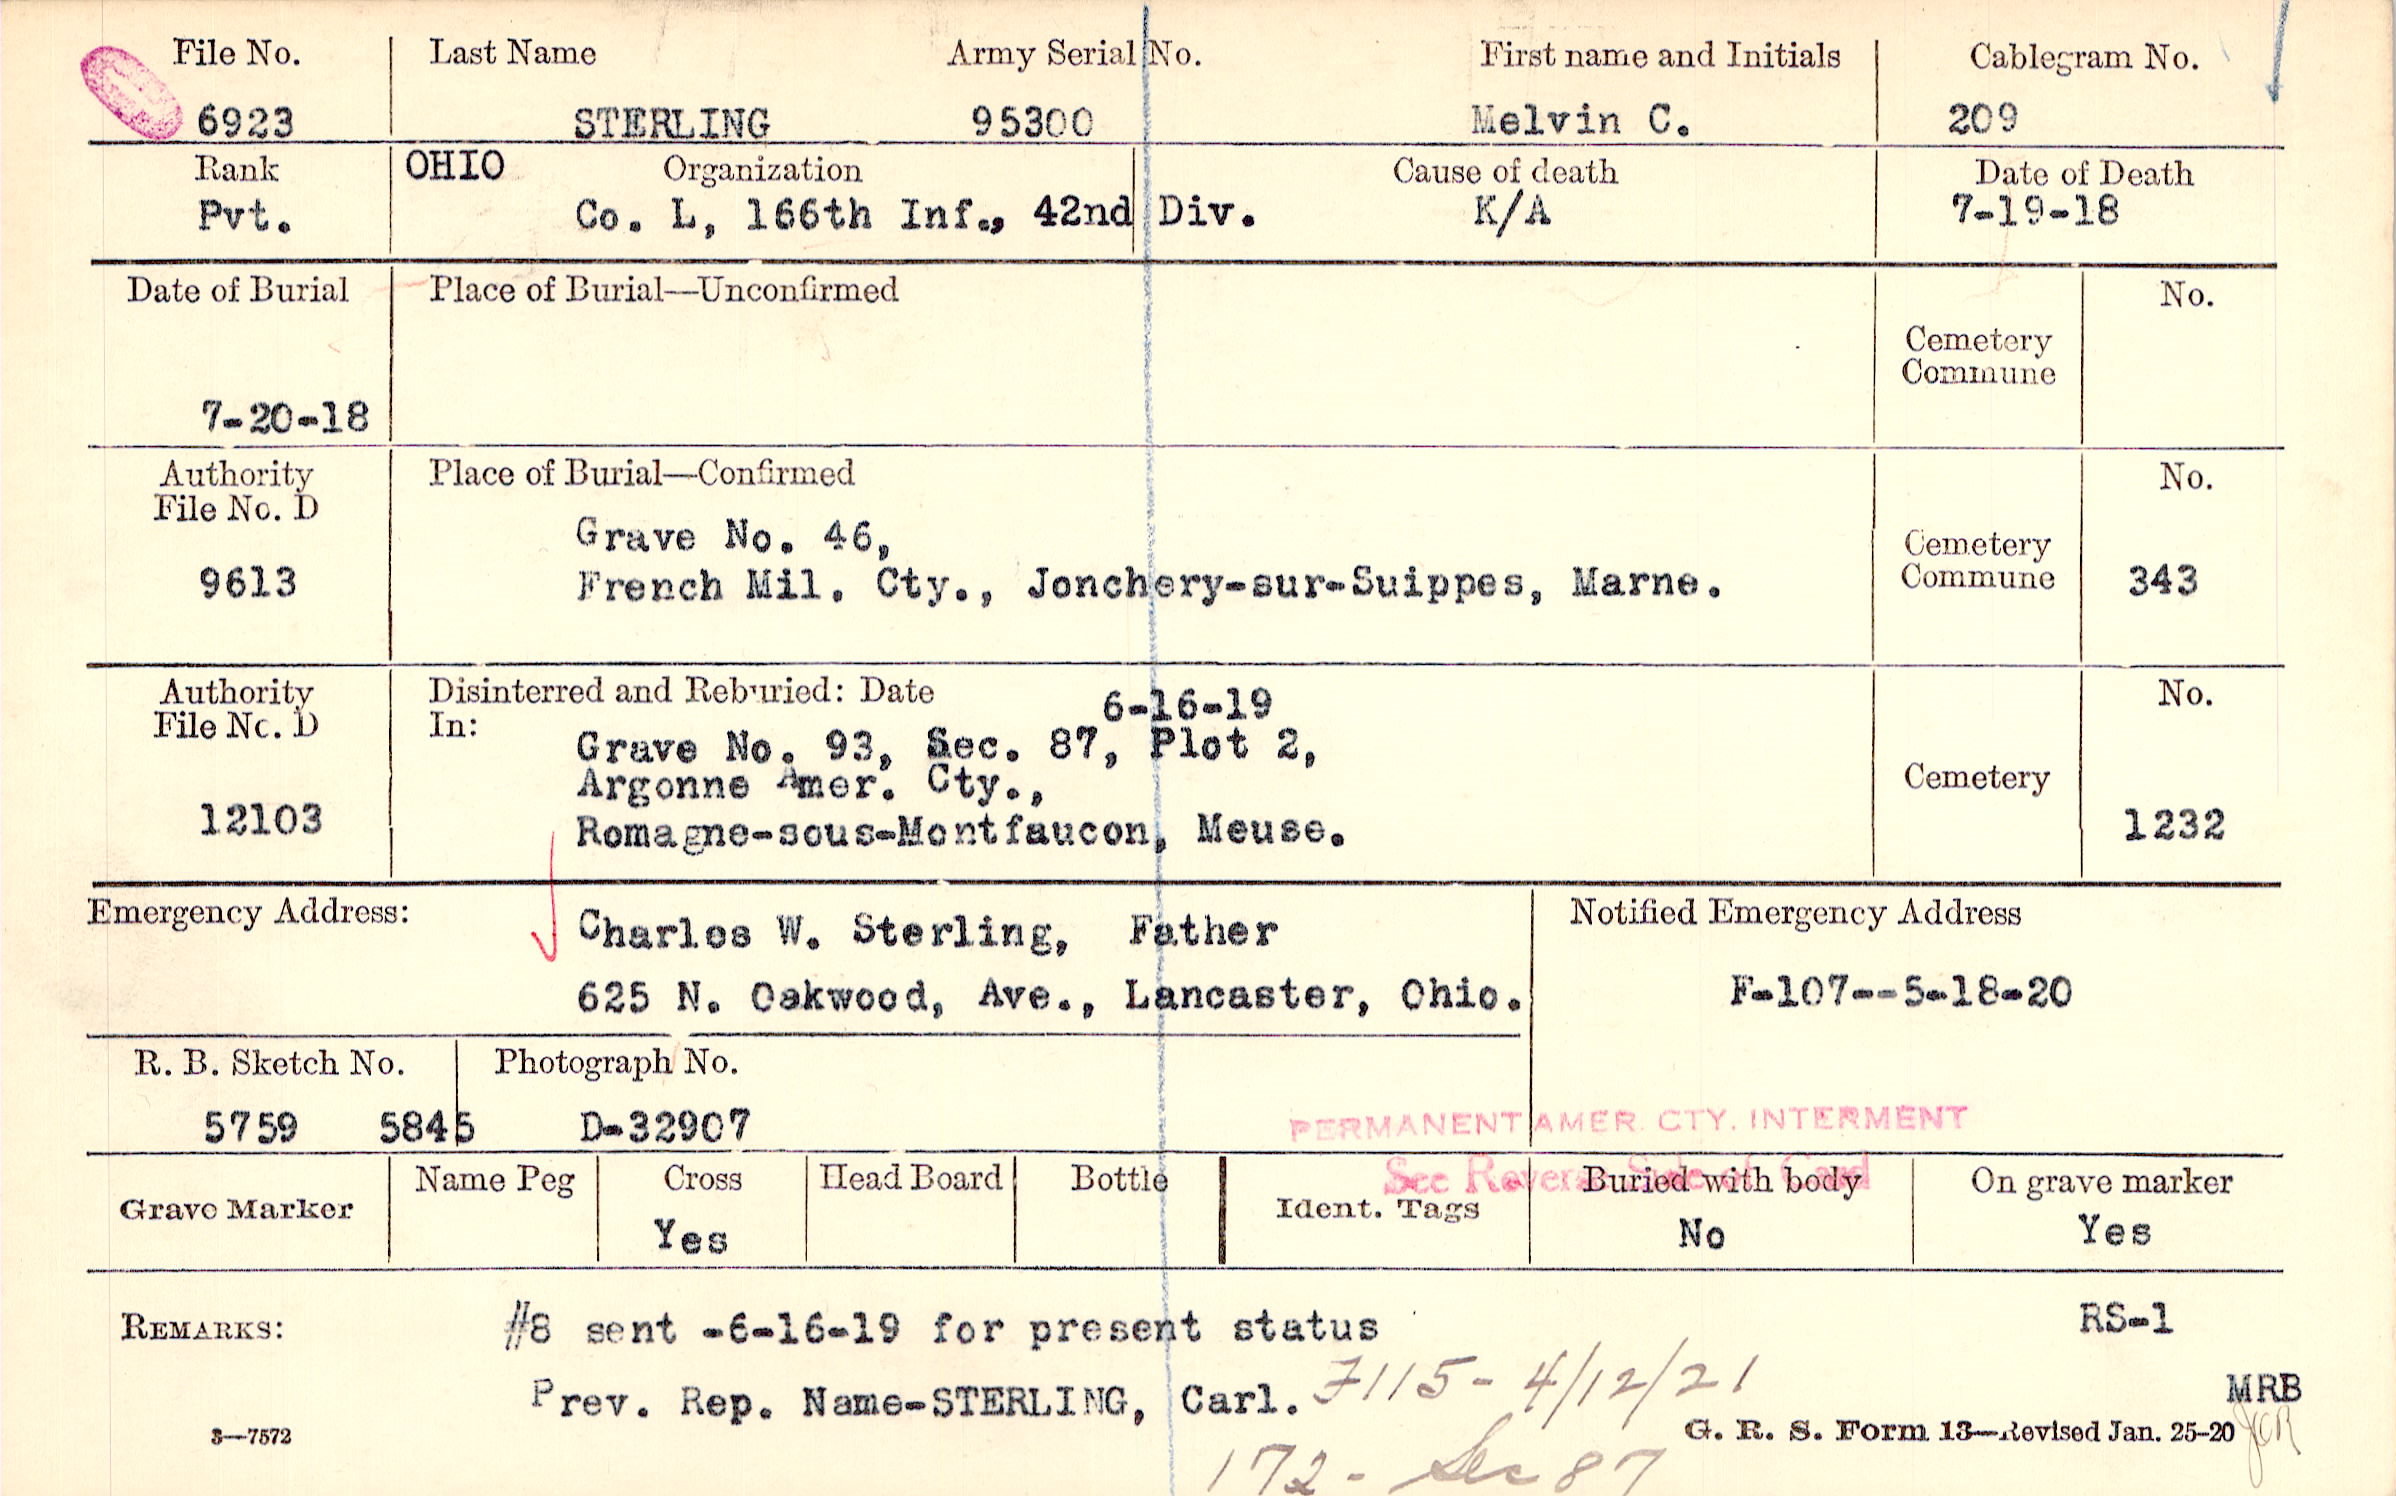 File No. Last Name Army Serial No. First name and Initials Cablegram No.
6923 STERLING 95300 Melvin C. 209
Rank OHIO Organization Cause of death Date of Death
Pvt. Co. L, 166th Inf., 42nd Div. K/A 7-19-18
Date of Burial Place of Burial—Unconfirmed No.
Cemetery
Commune
7-20-18
Authority Place of Burial—Confirmed No.
File No. D
Grave No. 46,
Cemetery
9613 French Mil. Cty., Jonchery-sur-Suippes, Marne. Commune 343
Authority Disinterred and Reburied: Date 6-16-19 No.
File No. D In:
Grave No. 93, Sec. 87, Plot 2,
Argonne Amer. Cty., Cemetery
12103 Romagne-sous-Montfaucon, Meuse. 1232
Emergency Address: Charles W. Sterling, Father Notified Emergency Address
625 N. Oakwood, Ave., Lancaster, Ohio. F-107--5-18-20
R. B. Sketch No. Photograph No.
5759 5845 D-32907 PERMANENT AMER. CTY. INTERMENT
See Reverse Side of Card
Grave Marker Name Peg Cross Head Board Bottle Ident. Tags Buried with body On grave marker
Yes No Yes
REMARKS: #8 sent -6-16-19 for present status RS-1
Prev. Rep. Name-STERLING, Carl. F115- 4/12/21 MRB
3—7572 G. R. S. Form 13—Revised Jan. 25-20
172- Sec 87